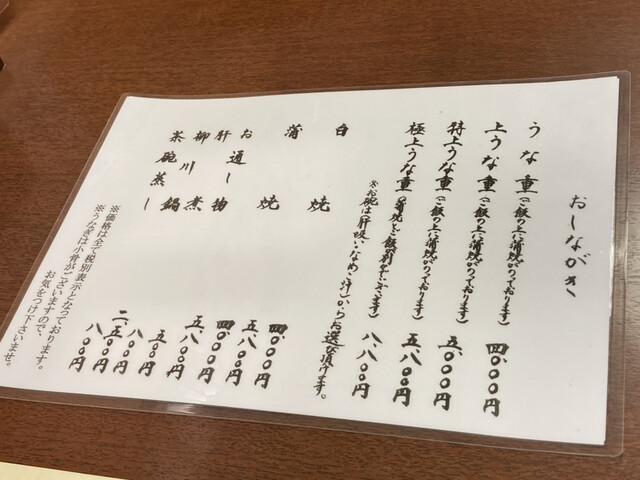 おしながき
うな重(ご飯の上に蒲焼がのっております) 四、〇〇〇円
上うな重(ご飯の上に蒲焼がのっております) 五、〇〇〇円
特上うな重(ご飯の上に蒲焼がのっております) 五、八〇〇円
極上うな重(蒲焼とご飯が別々でございます) 八、八〇〇円
※お碗は肝吸い、なめこ汁、からお選び頂けます。
白焼 四、〇〇〇円
五、八〇〇円
蒲焼 四、〇〇〇円
五、八〇〇円
お通し物 五〇〇円
肝煮 八〇〇円
柳川鍋 二、五〇〇円
茶碗蒸し 八〇〇円
※価格は全て税別表示となっております。
※うなぎは小骨がございますので、
お気をつけ下さいませ。